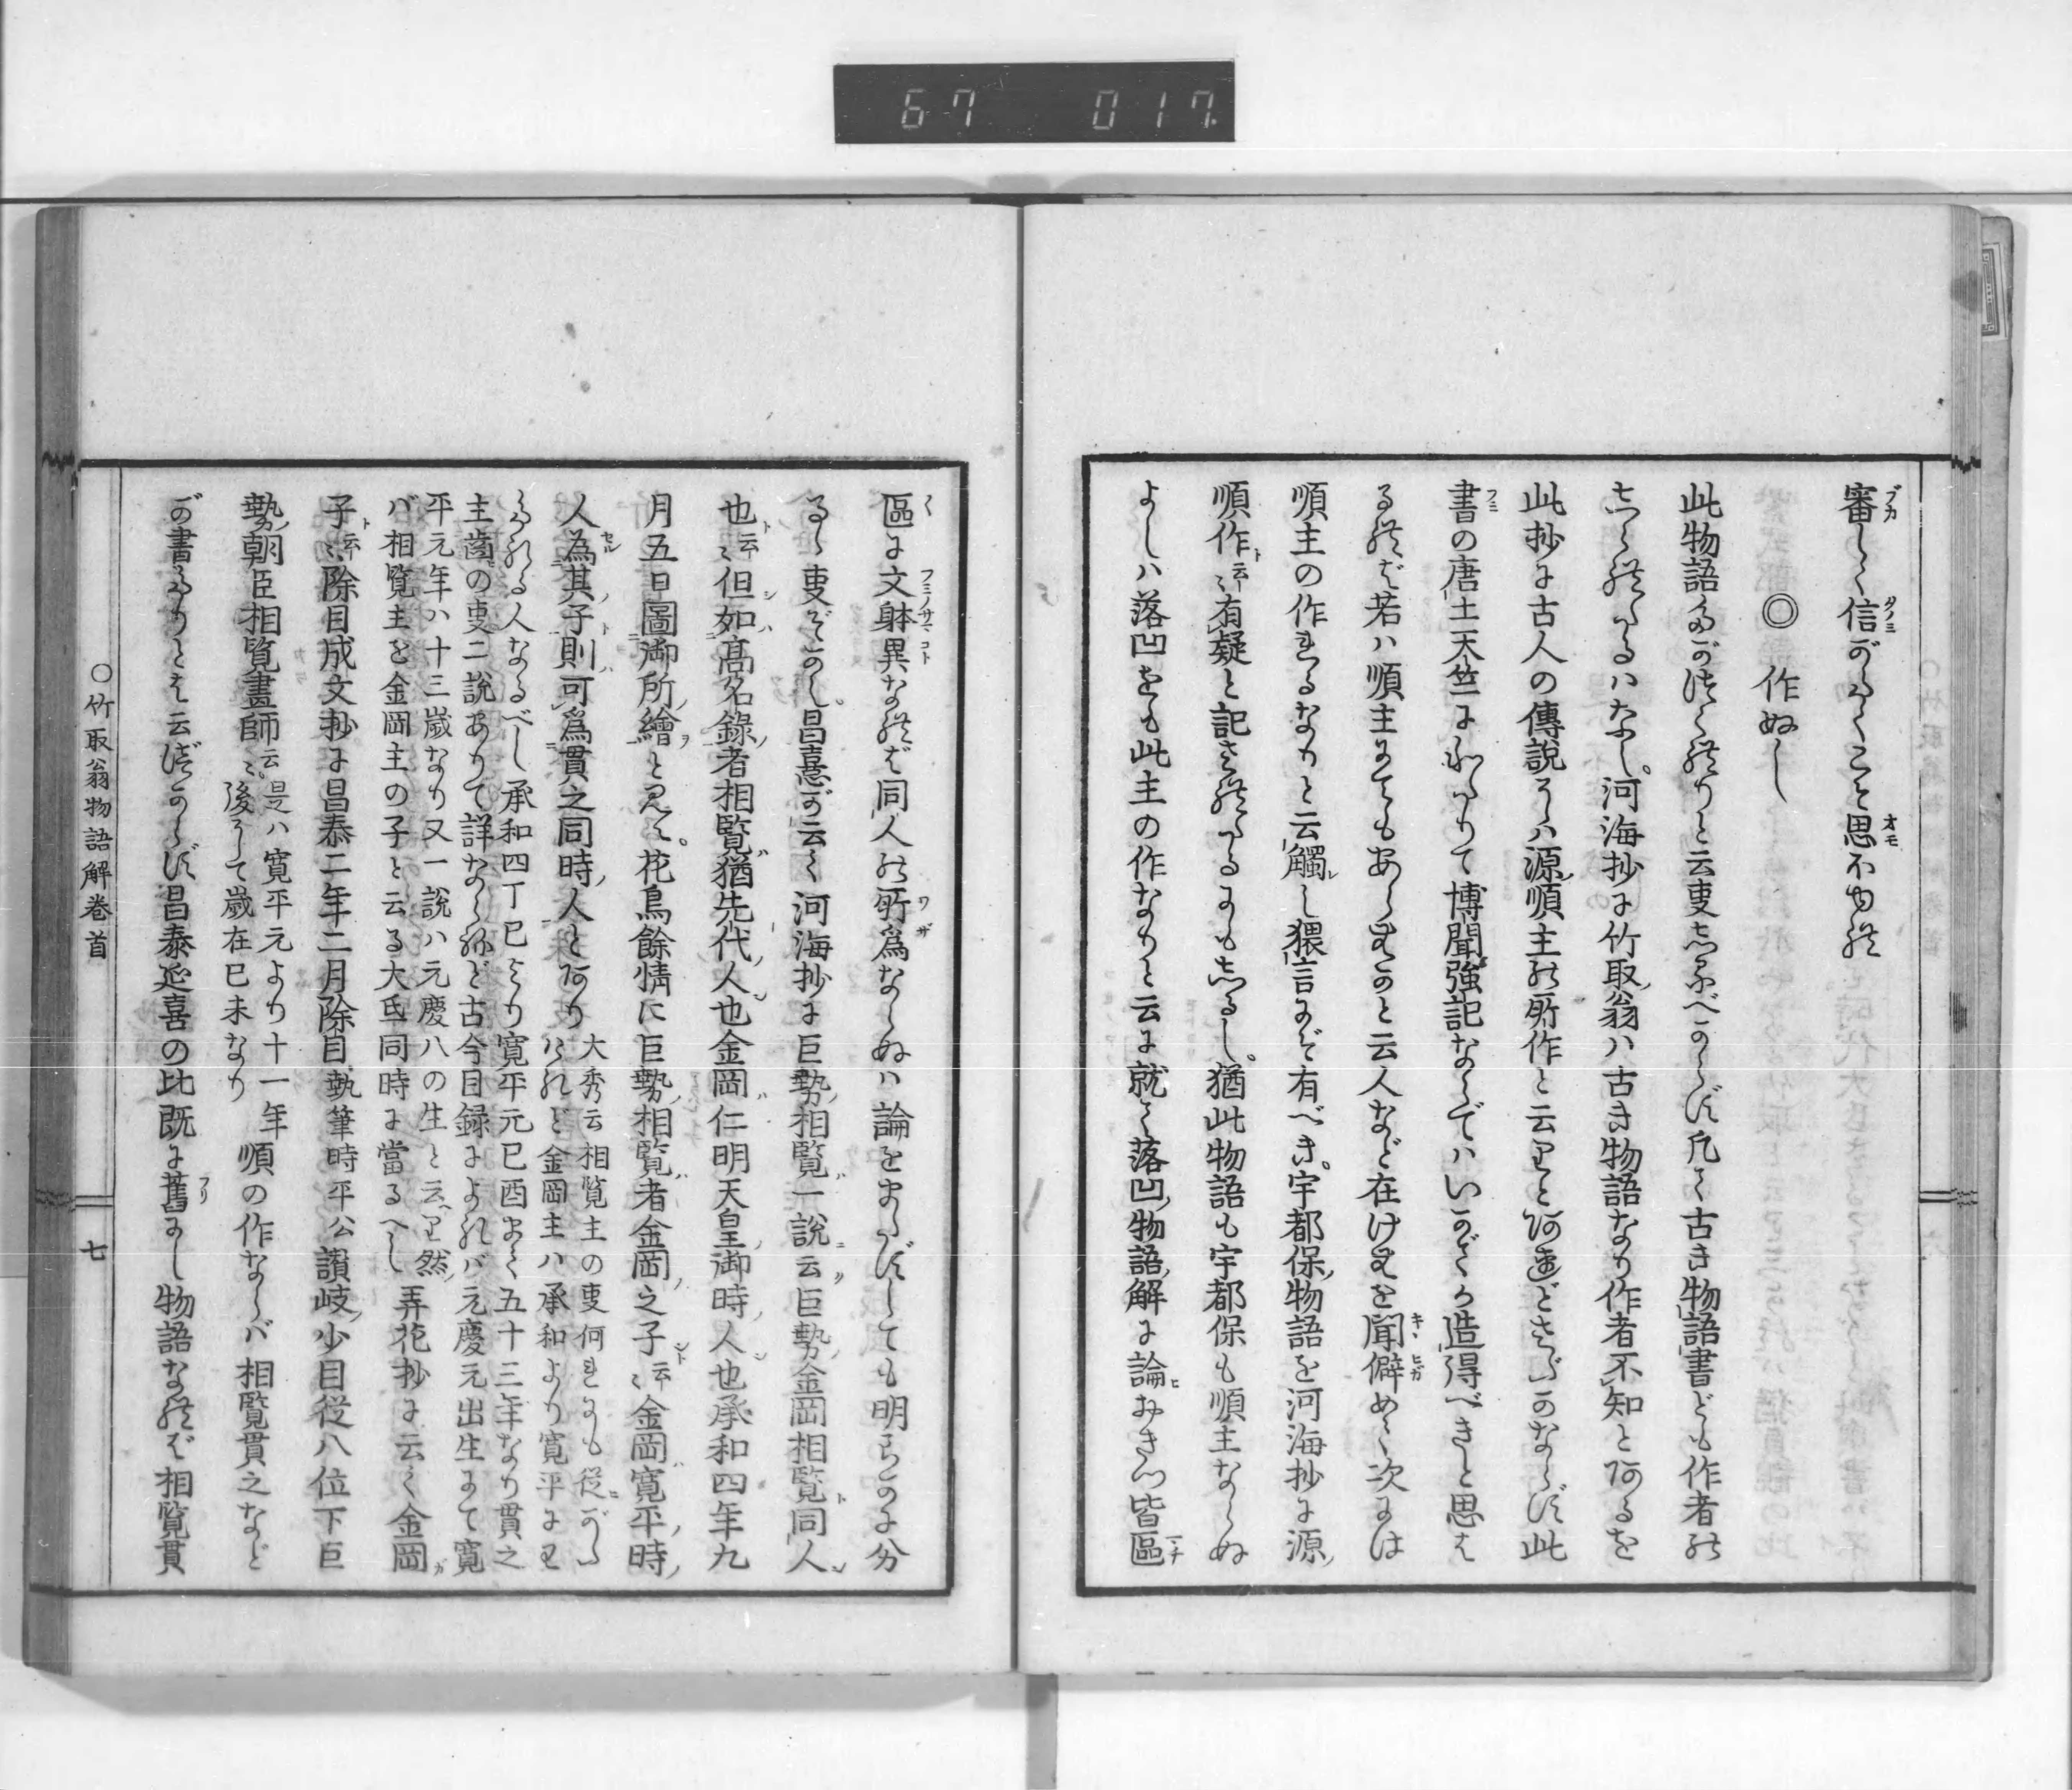 67 017
審しく信がたくこそ思ゆれ
◎ 作ぬし
此物語もがたくれりと云事知るべからず凡て古き物語書ども作者の
しられたるハなし。河海抄に竹取翁ハ古き物語なり作者不知とあるを
此抄に古人の傳說うハ源順主の所作と云りとあれどさだかならず此
書の唐土天竺にわたりて博聞強記ならでハいかでか造得べきと思は
るれば若ハ順主にてもあらむかと云人など在けむを聞僻めて次には
順主の作れるなりと云觸し猥言にぞ有べき。宇都保物語を河海抄に源
順作ト云々有疑と記されたるにもしるし。猶此物語も宇都保も順主ならぬ
よしハ落凹をも此主の作なりと云に就て落凹物語解に論おきつ皆區
區に文躰異なれば同人の所爲ならぬハ論をまたずしても明らかに分
るゝ事ぞかし。昌憙が云く河海抄に巨勢相覽一說云巨勢金岡相覽同人
也ト云々但如髙名錄者相覽猶先代人也金岡仁明天皇御時人也承和四年九
月五日圖御所繪と見ゆ。花鳥餘情に巨勢相覽者金岡之子ト云々金岡寬平時
人為其子則可爲貫之同時人とあり
大秀云相覽主の事何れにも從がた
けれど金岡主ハ承和より寬平にき
こえたる人なるべし承和四丁巳より寬平元己酉まて五十三年なり貫之
主齒の事二說ありて詳ならねど古今目録によれバ元慶元出生にて寬
平元年ハ十三歲なり又一說ハ元慶八の生と云り然
バ相覽主を金岡主の子と云る大氐同時に當るへし
弄花抄に云く金岡
子ト云々除目成文抄に昌泰二年二月除目執筆時平公讃岐少目從八位下巨
勢朝臣相覽畫師云々。
是ハ寬平元より十一年
後にて歲在己未なり
順の作ならバ相覽貫之など
が書たりとは云ずかし昌泰延喜の比既に舊にし物語なれば相覽貫
○竹取翁物語解卷首 七